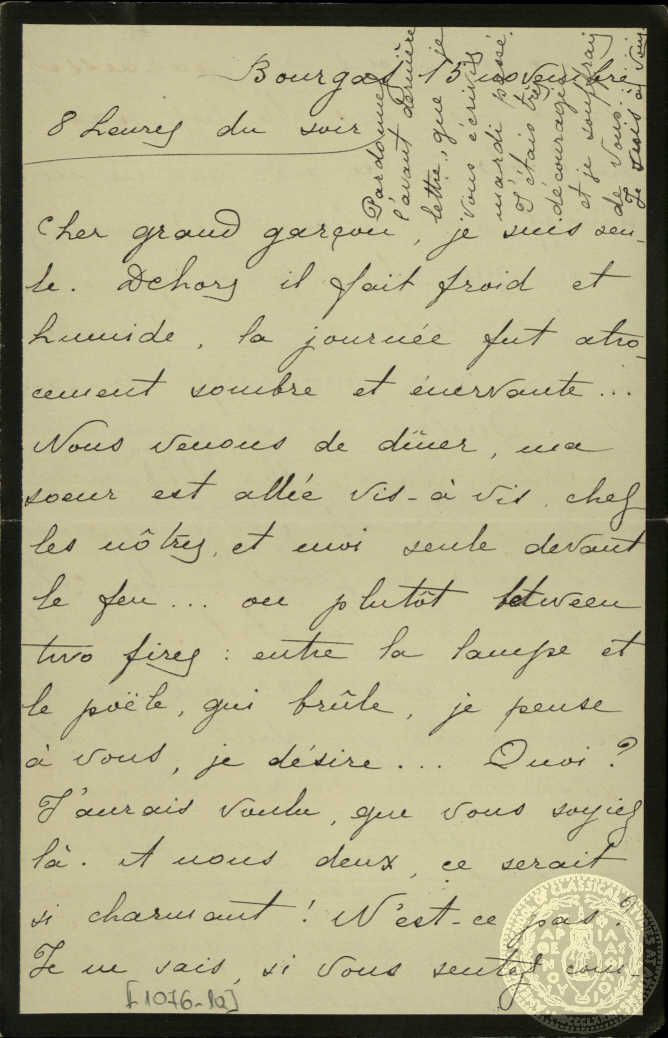 Bourgas 15 novembre
8 heures du soir
Pardonnez
l'avant dernière
lettre, que je
vous écrivis
mardi passé.
J'étais très
découragée
et je souffrais
de vous.
Je suis à vous
Cher grand garçon, je suis seu-
le. Dehors il fait froid et
humide, la journée fut atro-
cement sombre et énervante...
Nous venons de dîner, ma
soeur est allée vis-à vis, chez
les nôtres, et moi seule devant
le feu... ou plutôt between
two fires : entre la lampe et
le poële, qui brûle, je pense
à vous, je désire... Quoi?
J'aurais voulu, que vous soyiez
là. et nous deux, ce serait
si charmant! N'est-ce pas?
Je ne sais, si vous sentez com-
[1076-1a]